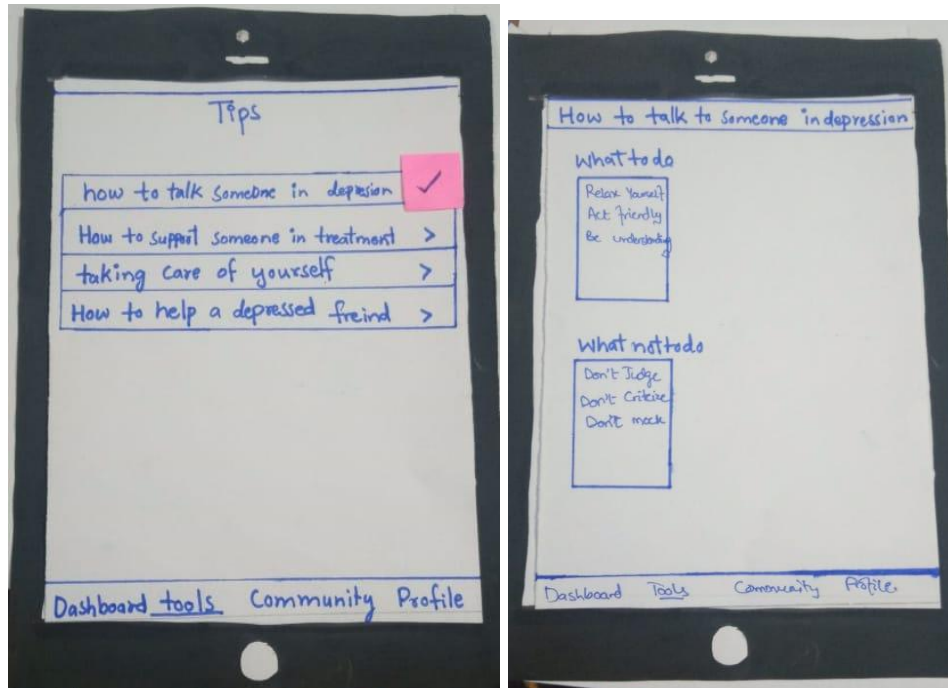 Tips
how to talk someone in depresion
How to support someone in treatment >
taking care of yourself >
How to help a depressed freind >
Dashboard tools Community Profile
How to talk to someone in depression
What to do
Relax Yourself
Act friendly
Be understanding
What not to do
Don't Judge
Don't Criticize
Don't mock
Dashboard Tools Community Profile